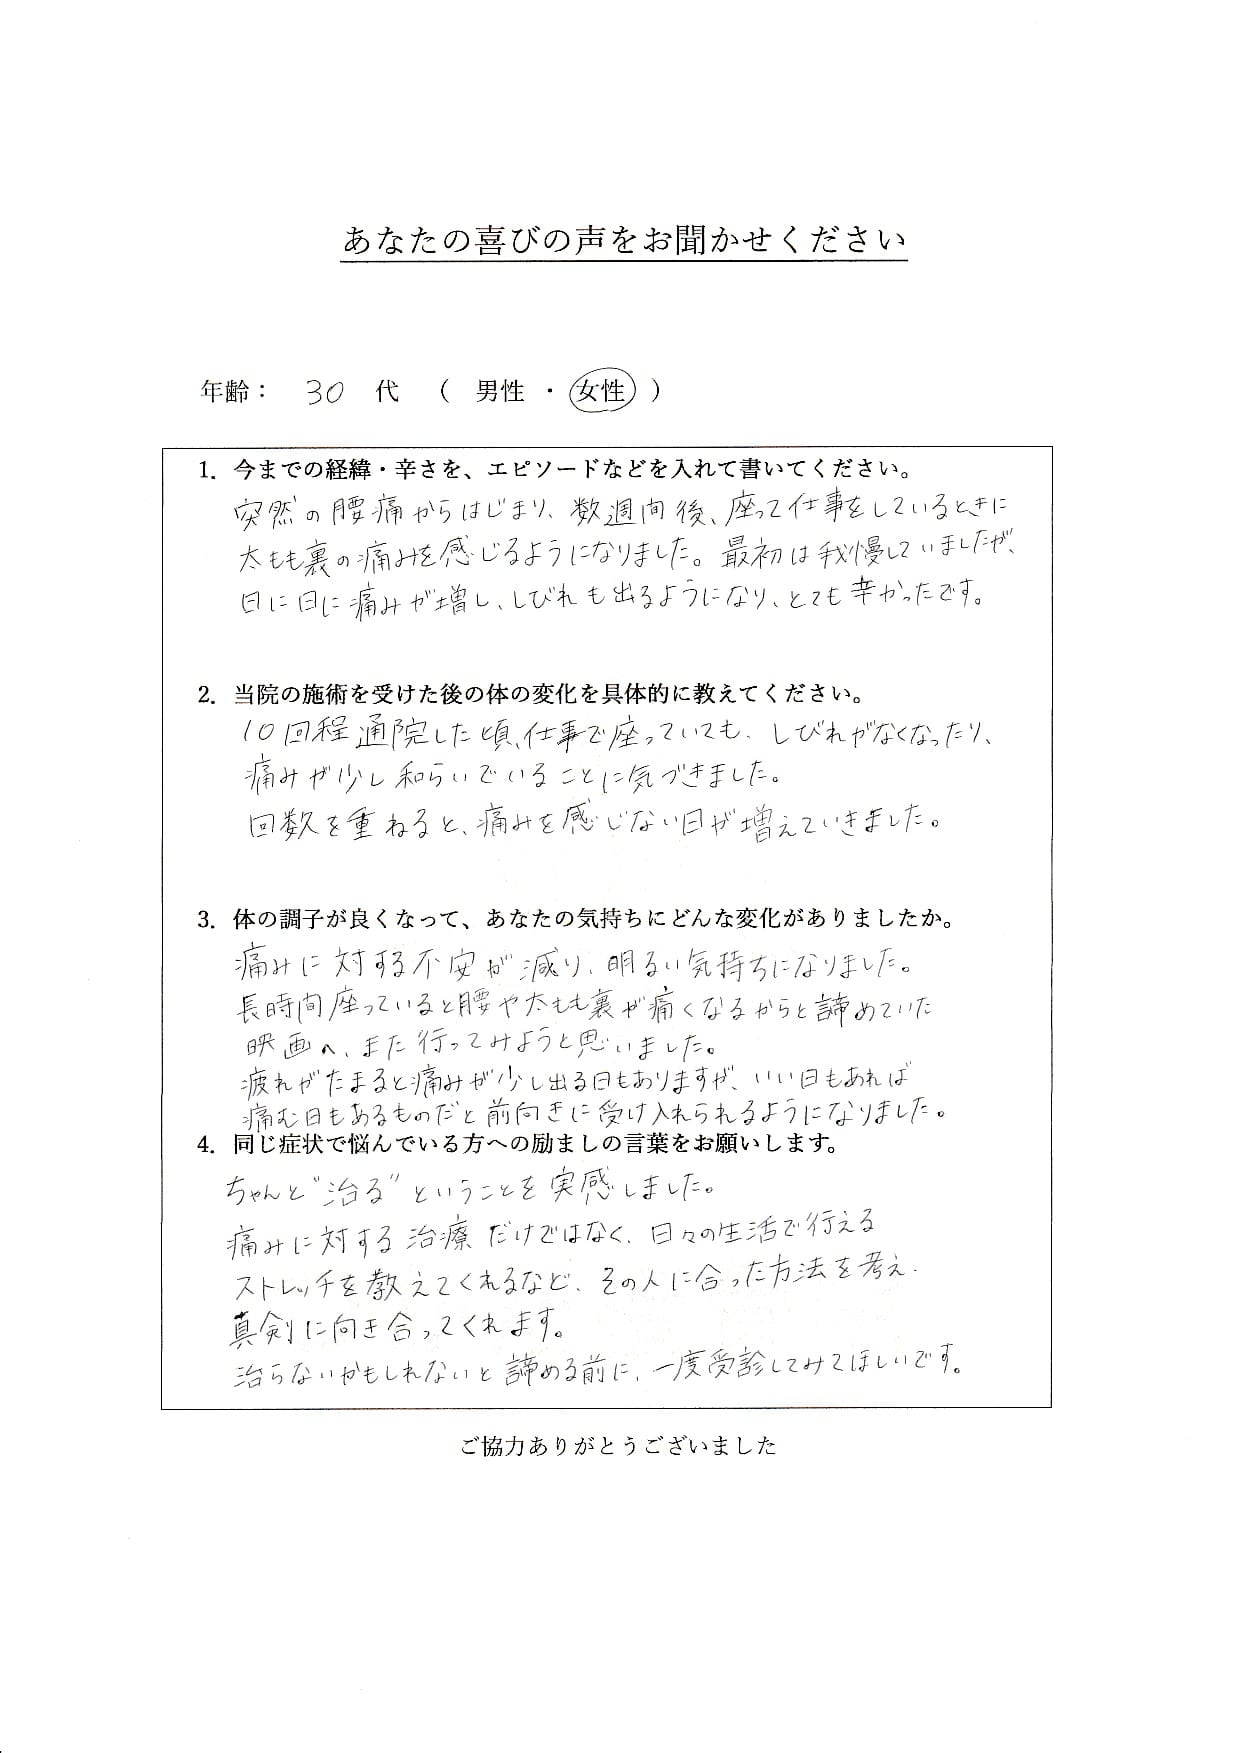 あなたの喜びの声をお聞かせください
年齢： 30 代 （ 男性 ・ 女性 ）
1. 今までの経緯・辛さを、エピソードなどを入れて書いてください。
突然の腰痛からはじまり、数週間後、座って仕事をしているときに
太もも裏の痛みを感じるようになりました。最初は我慢していましたが、
日に日に痛みが増し、しびれも出るようになり、とても辛かったです。
2. 当院の施術を受けた後の体の変化を具体的に教えてください。
10回程通院した頃、仕事で座っていても、しびれがなくなったり、
痛みが少し和らいでいることに気づきました。
回数を重ねると、痛みを感じない日が増えていきました。
3. 体の調子が良くなって、あなたの気持ちにどんな変化がありましたか。
痛みに対する不安が減り、明るい気持ちになりました。
長時間座っていると腰や太もも裏が痛くなるからと諦めていた
映画へ、また行ってみようと思いました。
疲れがたまると痛みが少し出る日もありますが、いい日もあれば
痛む日もあるものだと前向きに受け入れられるようになりました。
4. 同じ症状で悩んでいる方への励ましの言葉をお願いします。
ちゃんと“治る”ということを実感しました。
痛みに対する治療だけではなく、日々の生活で行える
ストレッチを教えてくれるなど、その人に合った方法を考え、
真剣に向き合ってくれます。
治らないかもしれないと諦める前に、一度受診してみてほしいです。
ご協力ありがとうございました